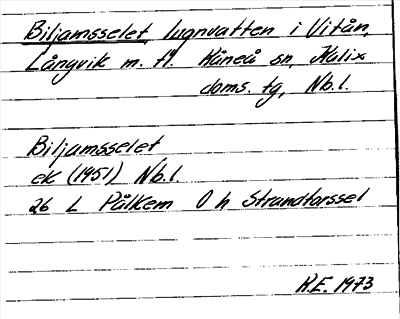 Biljamsselet, lugnvatten i Vitån,
Långvik m. fl. Råneå sn, Kalix
doms. tg, Nb.l.
Biljamsselet
ek (1951) Nb.l
26 L Pålkem O h Strandforssel
R.E. 1973